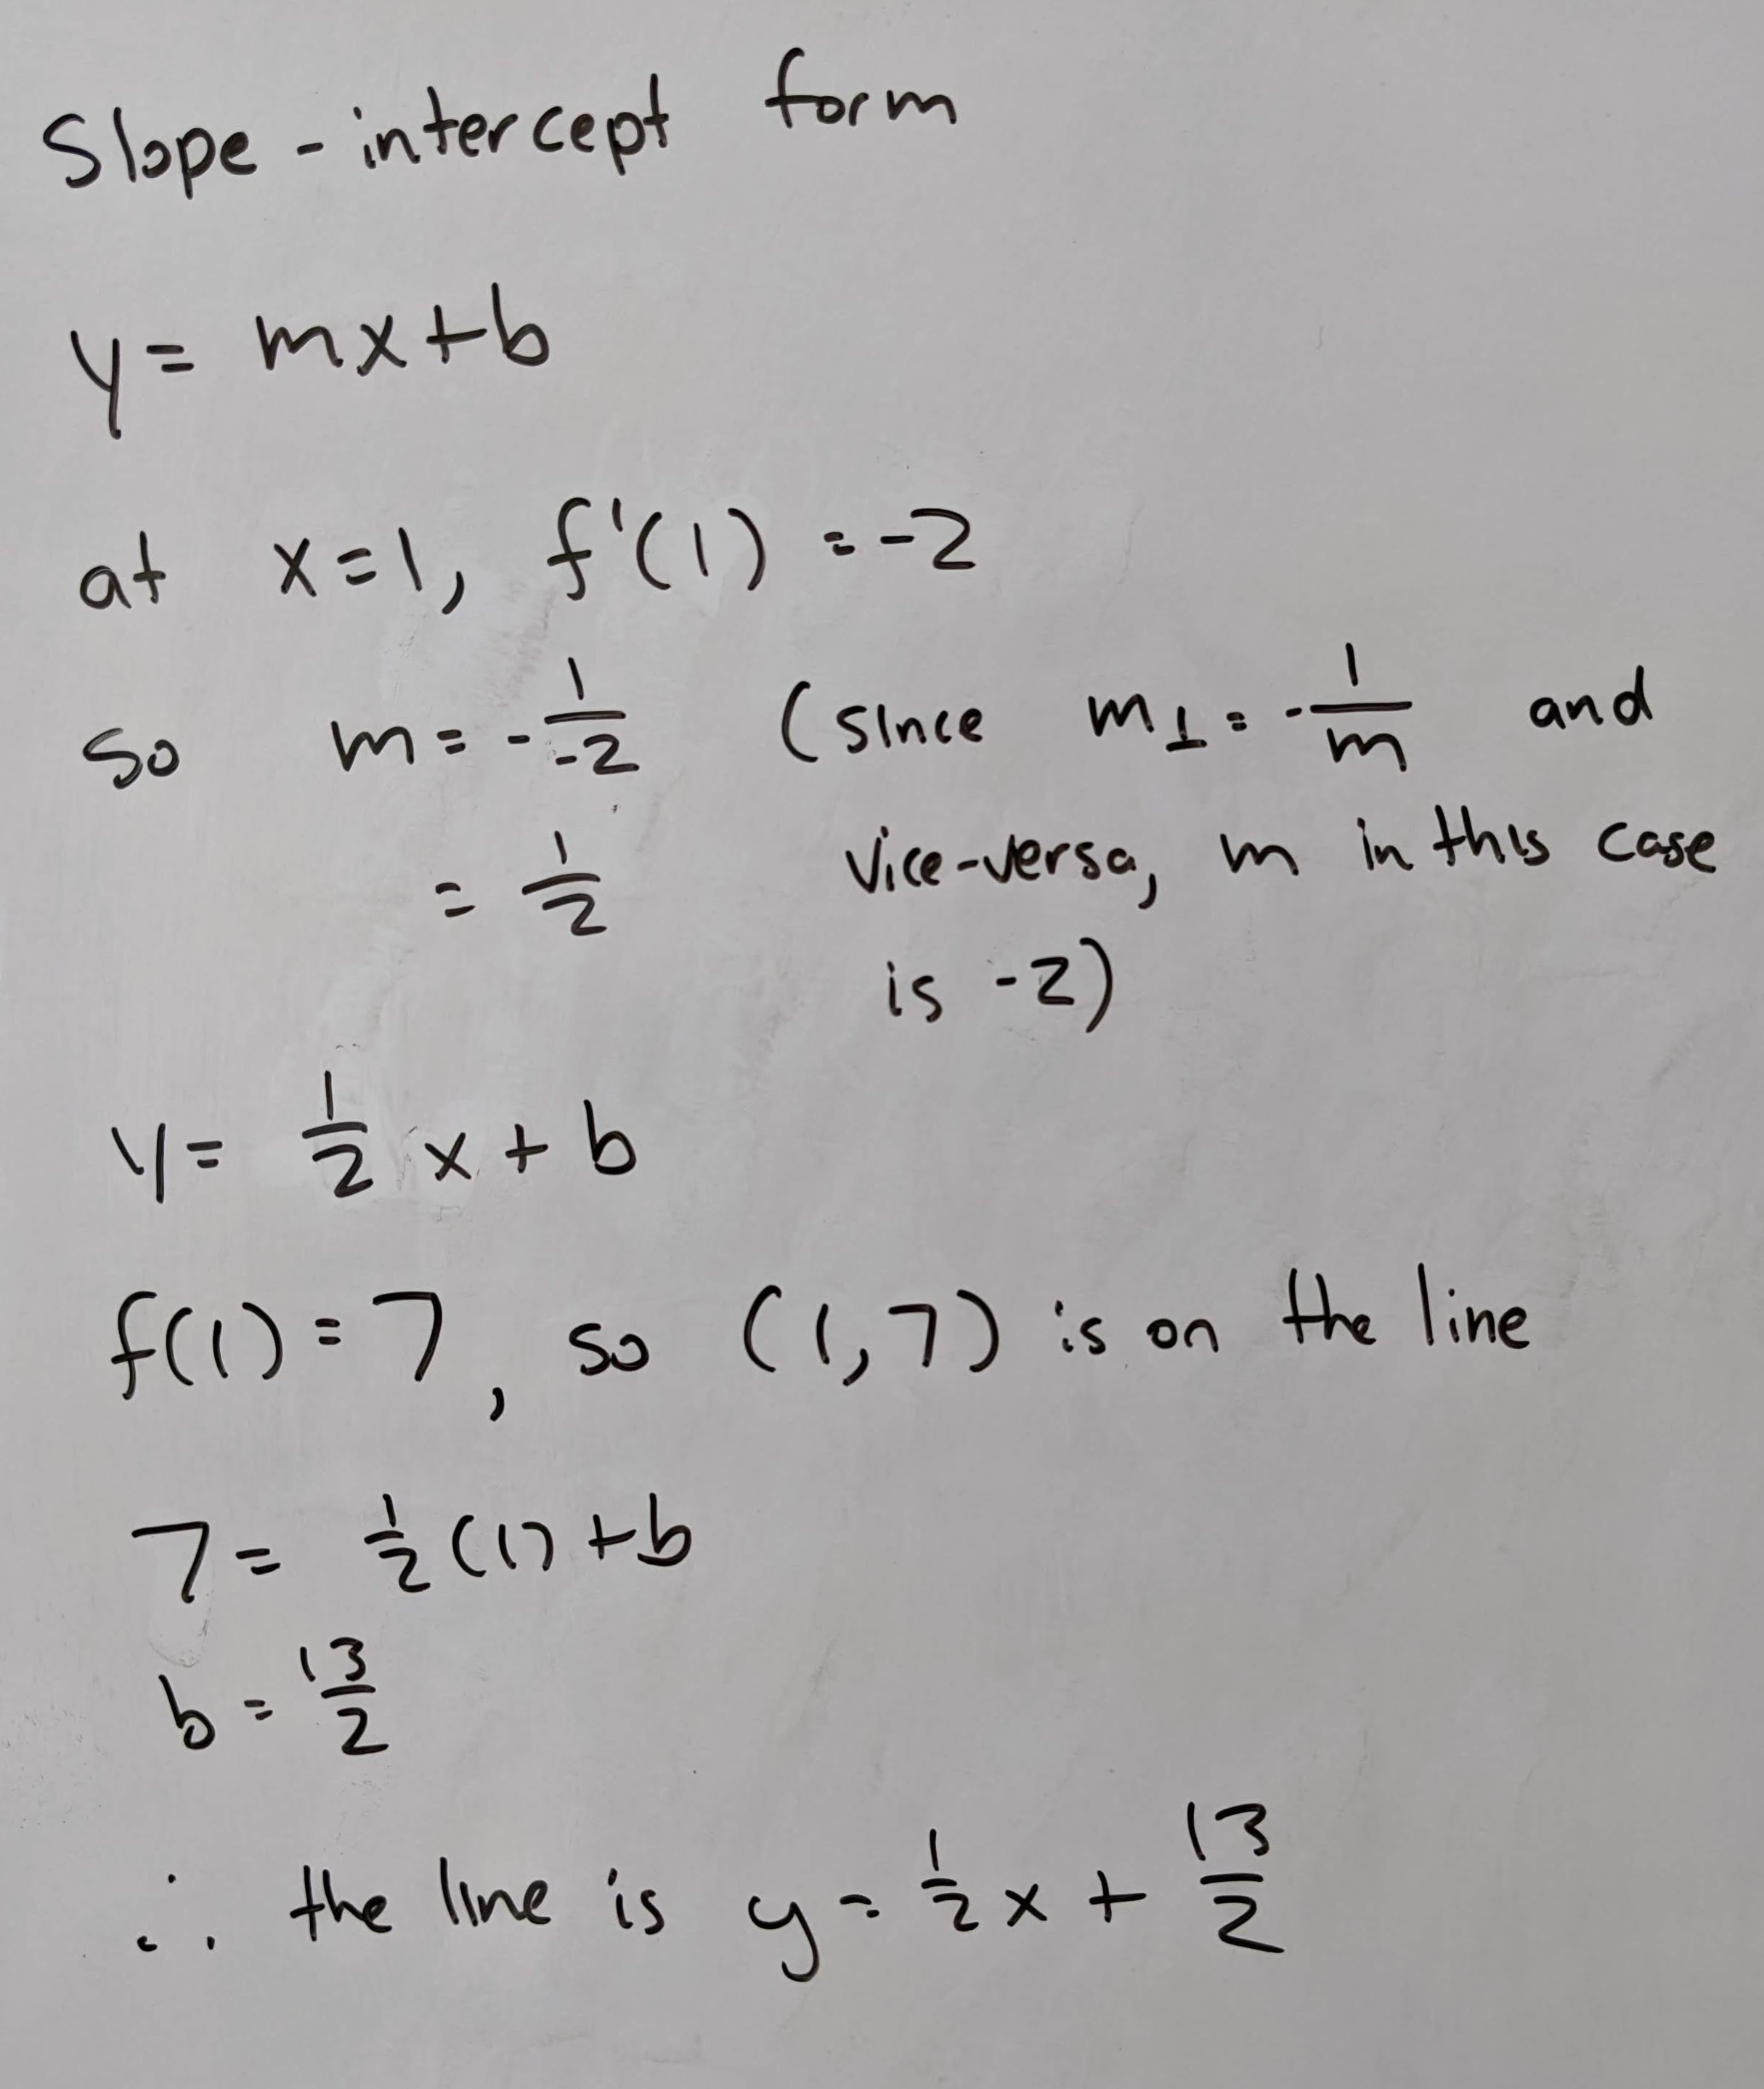 Slope-intercept form
y = mx+b
at x=1, f'(1) = -2
so m = -1/-2 (since m⊥ = -1/m and
= 1/2 vice-versa, m in this case
is -2)
y = 1/2 x + b
f(1) = 7, so (1,7) is on the line
7 = 1/2 (1) + b
b = 13/2
∴ the line is y = 1/2 x + 13/2